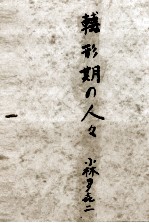 轉形期の人々
小林多喜二
一